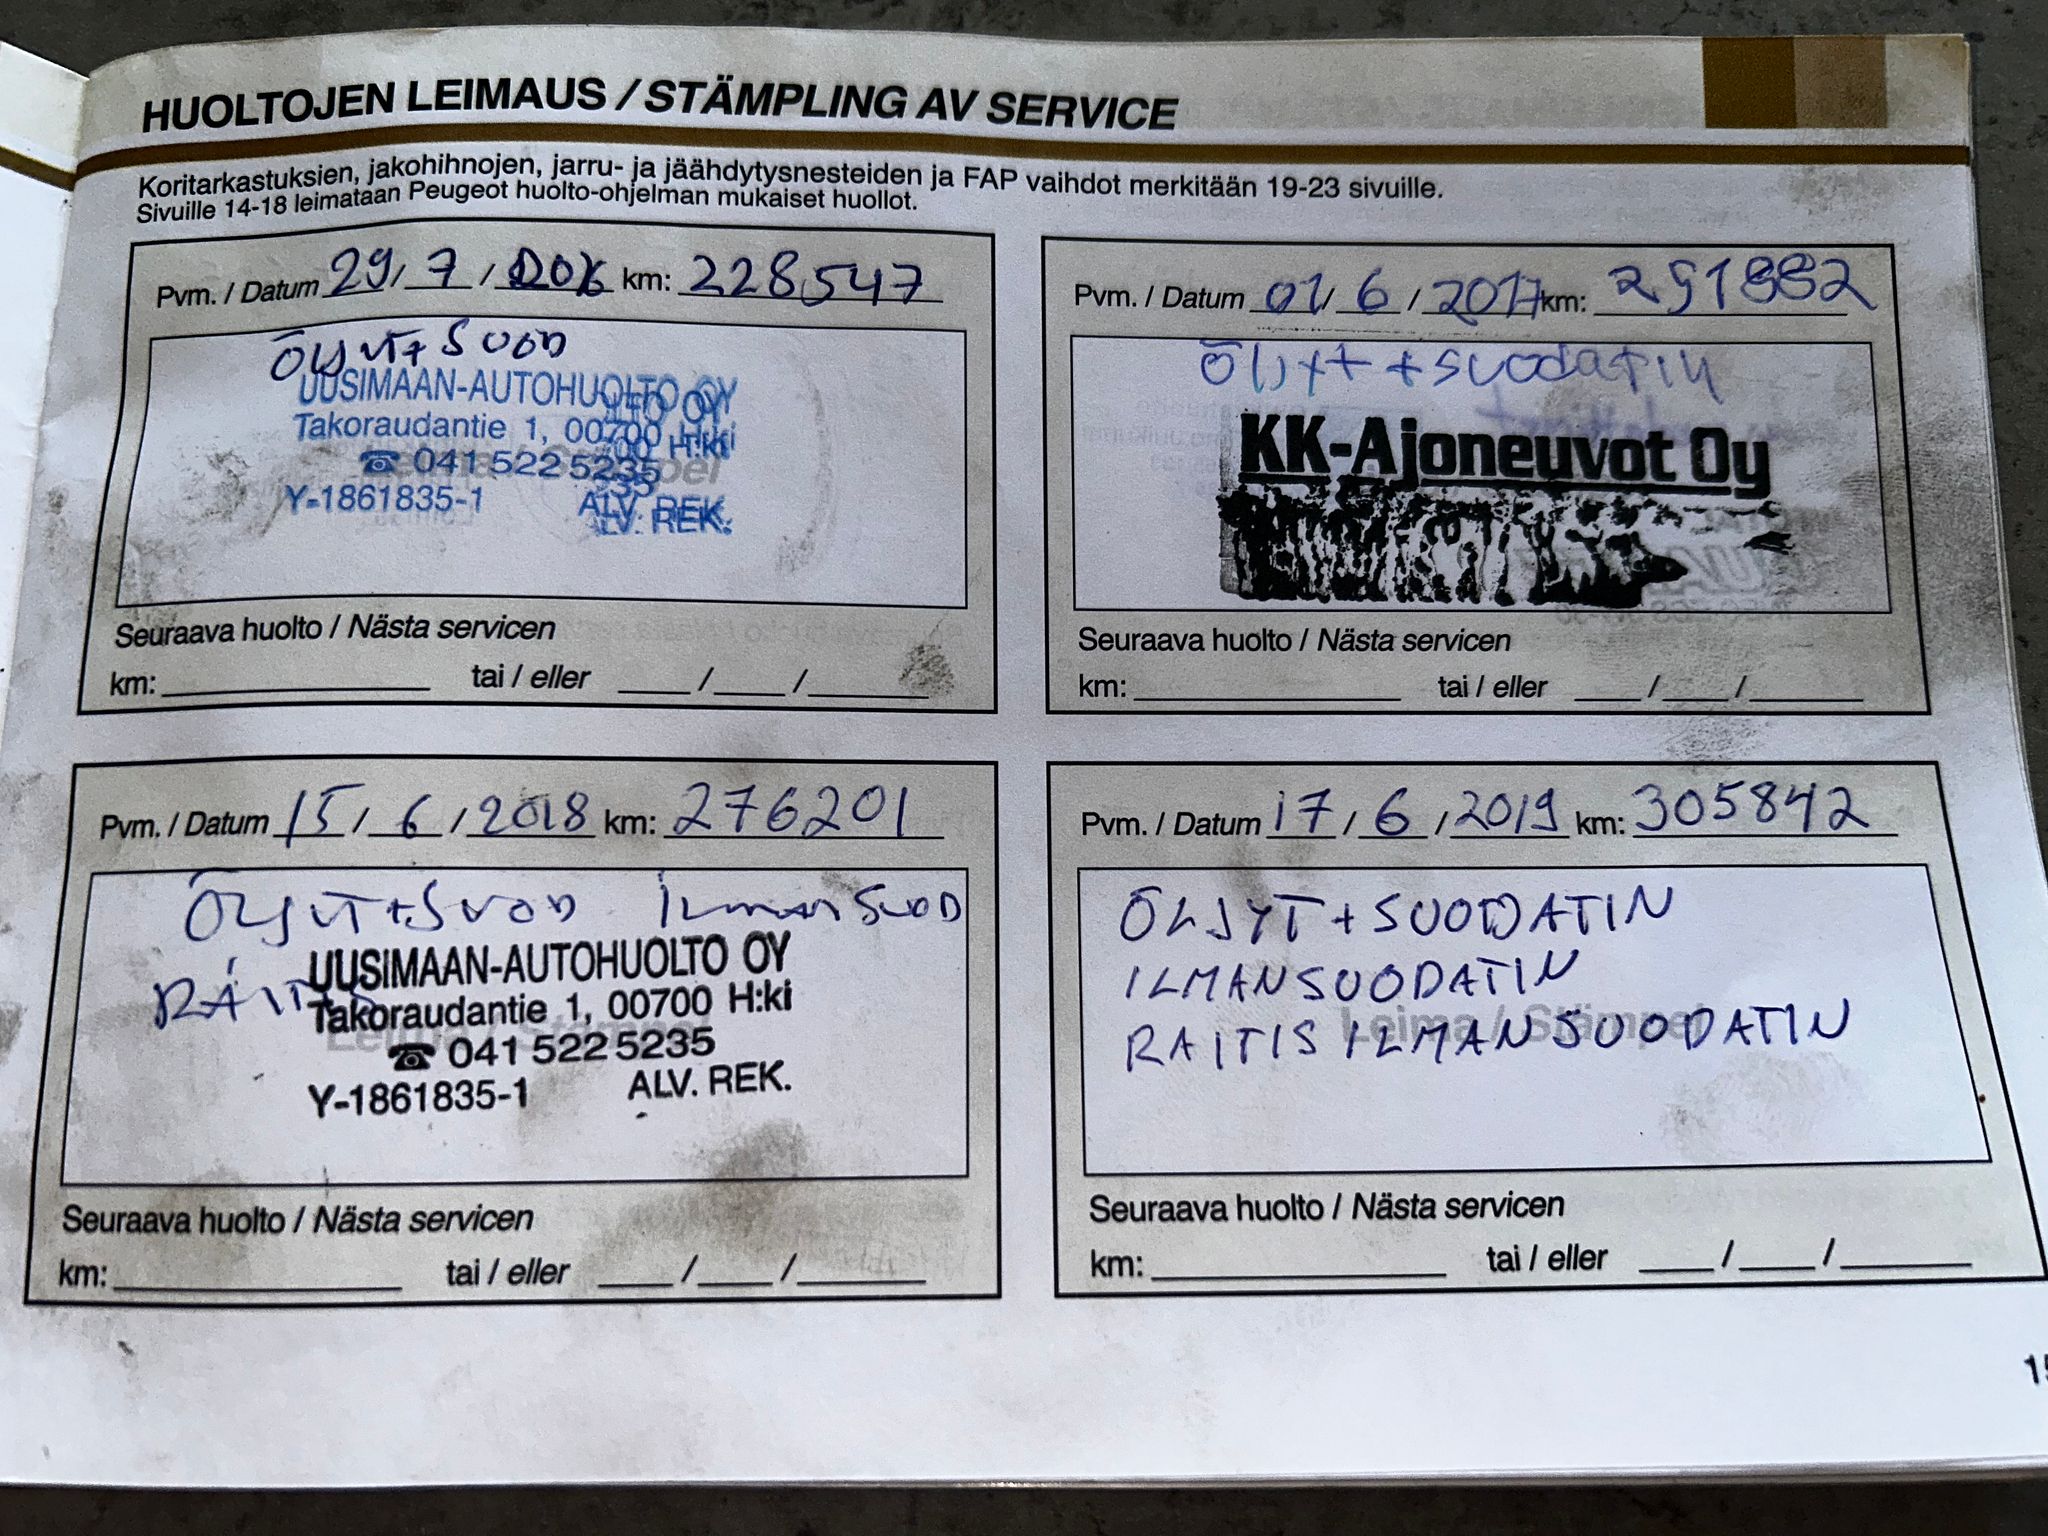 HUOLTOJEN LEIMAUS / STÄMPLING AV SERVICE
Koritarkastuksien, jakohihnojen, jarru- ja jäähdytysnesteiden ja FAP vaihdot merkitään 19-23 sivuille.
Sivuille 14-18 leimataan Peugeot huolto-ohjelman mukaiset huollot.
Pvm. / Datum 29/ 7 / km: 228547
ÖLJYT+ SUOD
UUSIMAAN-AUTOHUOLTO OY
Takoraudantie 1, 00700 H:ki
☎ 041 522 5235
Y-1861835-1 ALV. REK.
Seuraava huolto / Nästa servicen
km: tai / eller / /
Pvm. / Datum 01/ 6 / 2017 km: 251882
Öljyt + suodatin
KK-Ajoneuvot Oy
Seuraava huolto / Nästa servicen
km: tai / eller / /
Pvm. / Datum 15/ 6 / 2018 km: 276201
ÖLJYT+SUOD ilman SUOD
RAITIS
UUSIMAAN-AUTOHUOLTO OY
Takoraudantie 1, 00700 H:ki
Leima / Stämpel
☎ 041 522 5235
Y-1861835-1 ALV. REK.
Seuraava huolto / Nästa servicen
km: tai / eller / /
Pvm. / Datum 17 / 6 / 2019 km: 305842
ÖLJYT + SUODATIN
ILMANSUODATIN
Leima / Stämpel
RAITIS ILMANSUODATIN
Seuraava huolto / Nästa servicen
km: tai / eller / /